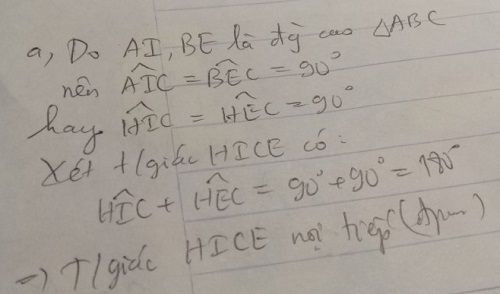 a, Do AI, BE là đg̀ cao △ABC
nên AÎC = BÊC = 90°
hay HÎC = HÊC = 90°
Xét t/giác HICE có:
HÎC + HÊC = 90° + 90° = 180°
=> T/giác HICE nội tiếp (đpcm)